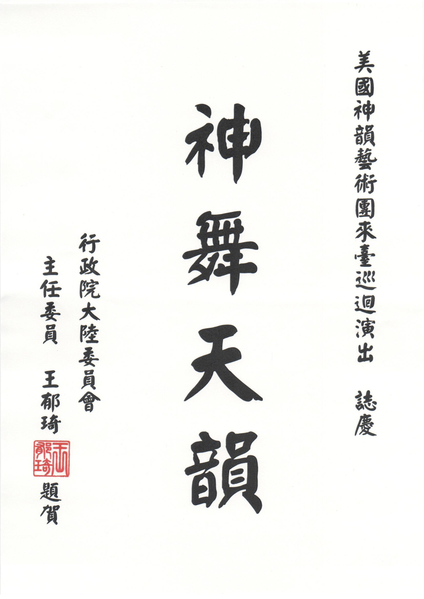 美國神韻藝術團來臺巡迴演出　誌慶
神舞天韻
行政院大陸委員會
主任委員　王郁琦　題賀
王郁琦